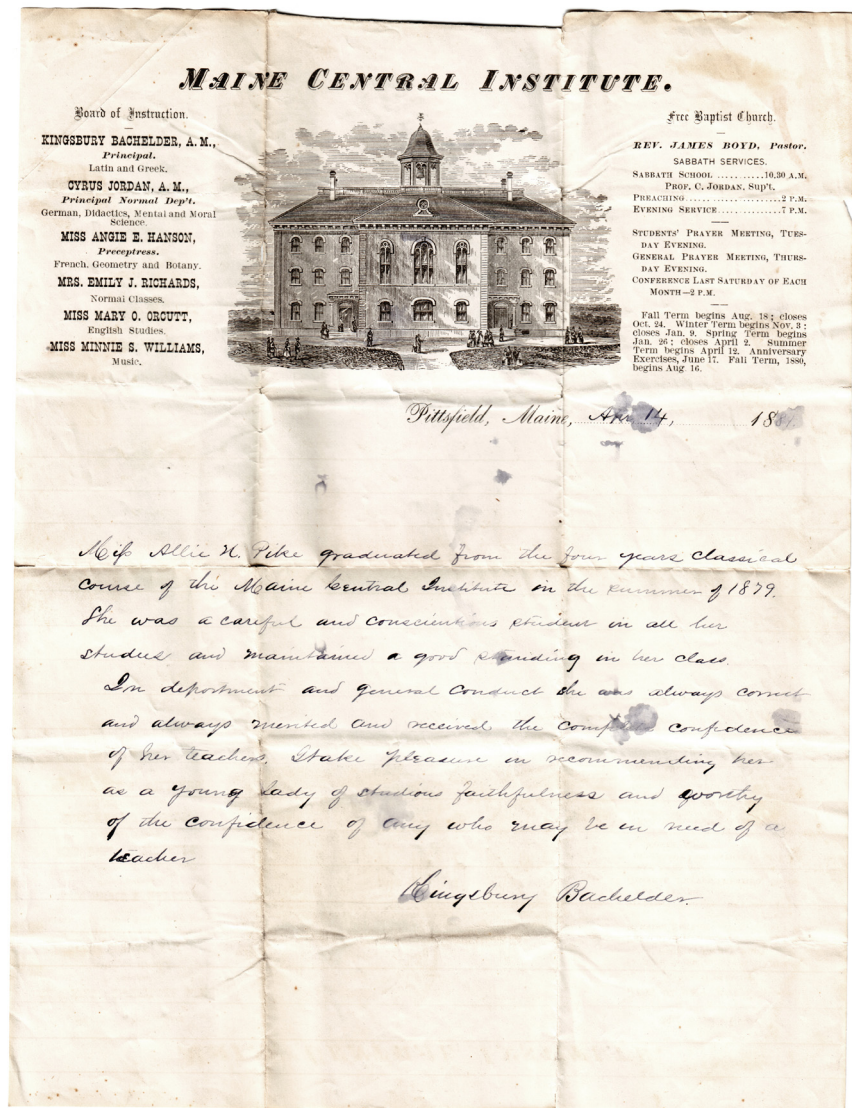 MAINE CENTRAL INSTITUTE.
Board of Instruction.
KINGSBURY BACHELDER, A. M.,
Principal.
Latin and Greek.
CYRUS JORDAN, A. M.,
Principal Normal Dep't.
German, Didactics, Mental and Moral
Science.
MISS ANGIE E. HANSON,
Preceptress.
French, Geometry and Botany.
MRS. EMILY J. RICHARDS,
Normal Classes.
MISS MARY O. ORCUTT,
English Studies.
MISS MINNIE S. WILLIAMS,
Music.
Free Baptist Church.
REV. JAMES BOYD, Pastor.
SABBATH SERVICES.
SABBATH SCHOOL ..........10.30 A.M.
PROF. C. JORDAN, Sup't.
PREACHING..................2 P.M.
EVENING SERVICE............7 P.M.
STUDENTS' PRAYER MEETING, TUES-
DAY EVENING.
GENERAL PRAYER MEETING, THURS-
DAY EVENING.
CONFERENCE LAST SATURDAY OF EACH
MONTH—2 P.M.
Fall Term begins Aug. 18; closes
Oct. 24. Winter Term begins Nov. 3;
closes Jan. 9. Spring Term begins
Jan. 26; closes April 2. Summer
Term begins April 12. Anniversary
Exercises, June 17. Fall Term, 1880,
begins Aug. 16.
Pittsfield, Maine, Apr. 14, 18
Miss Allie N. Pike graduated from the four years classical
course of the Maine Central Institute in the summer of 1879.
She was a careful and conscientious student in all her
studies and maintained a good standing in her class.
In deportment and general conduct she was always correct
and always merited and received the complete confidence
of her teachers. I take pleasure in recommending her
as a young lady of studious faithfulness and worthy
of the confidence of any who may be in need of a
teacher
Kingsbury Bachelder.